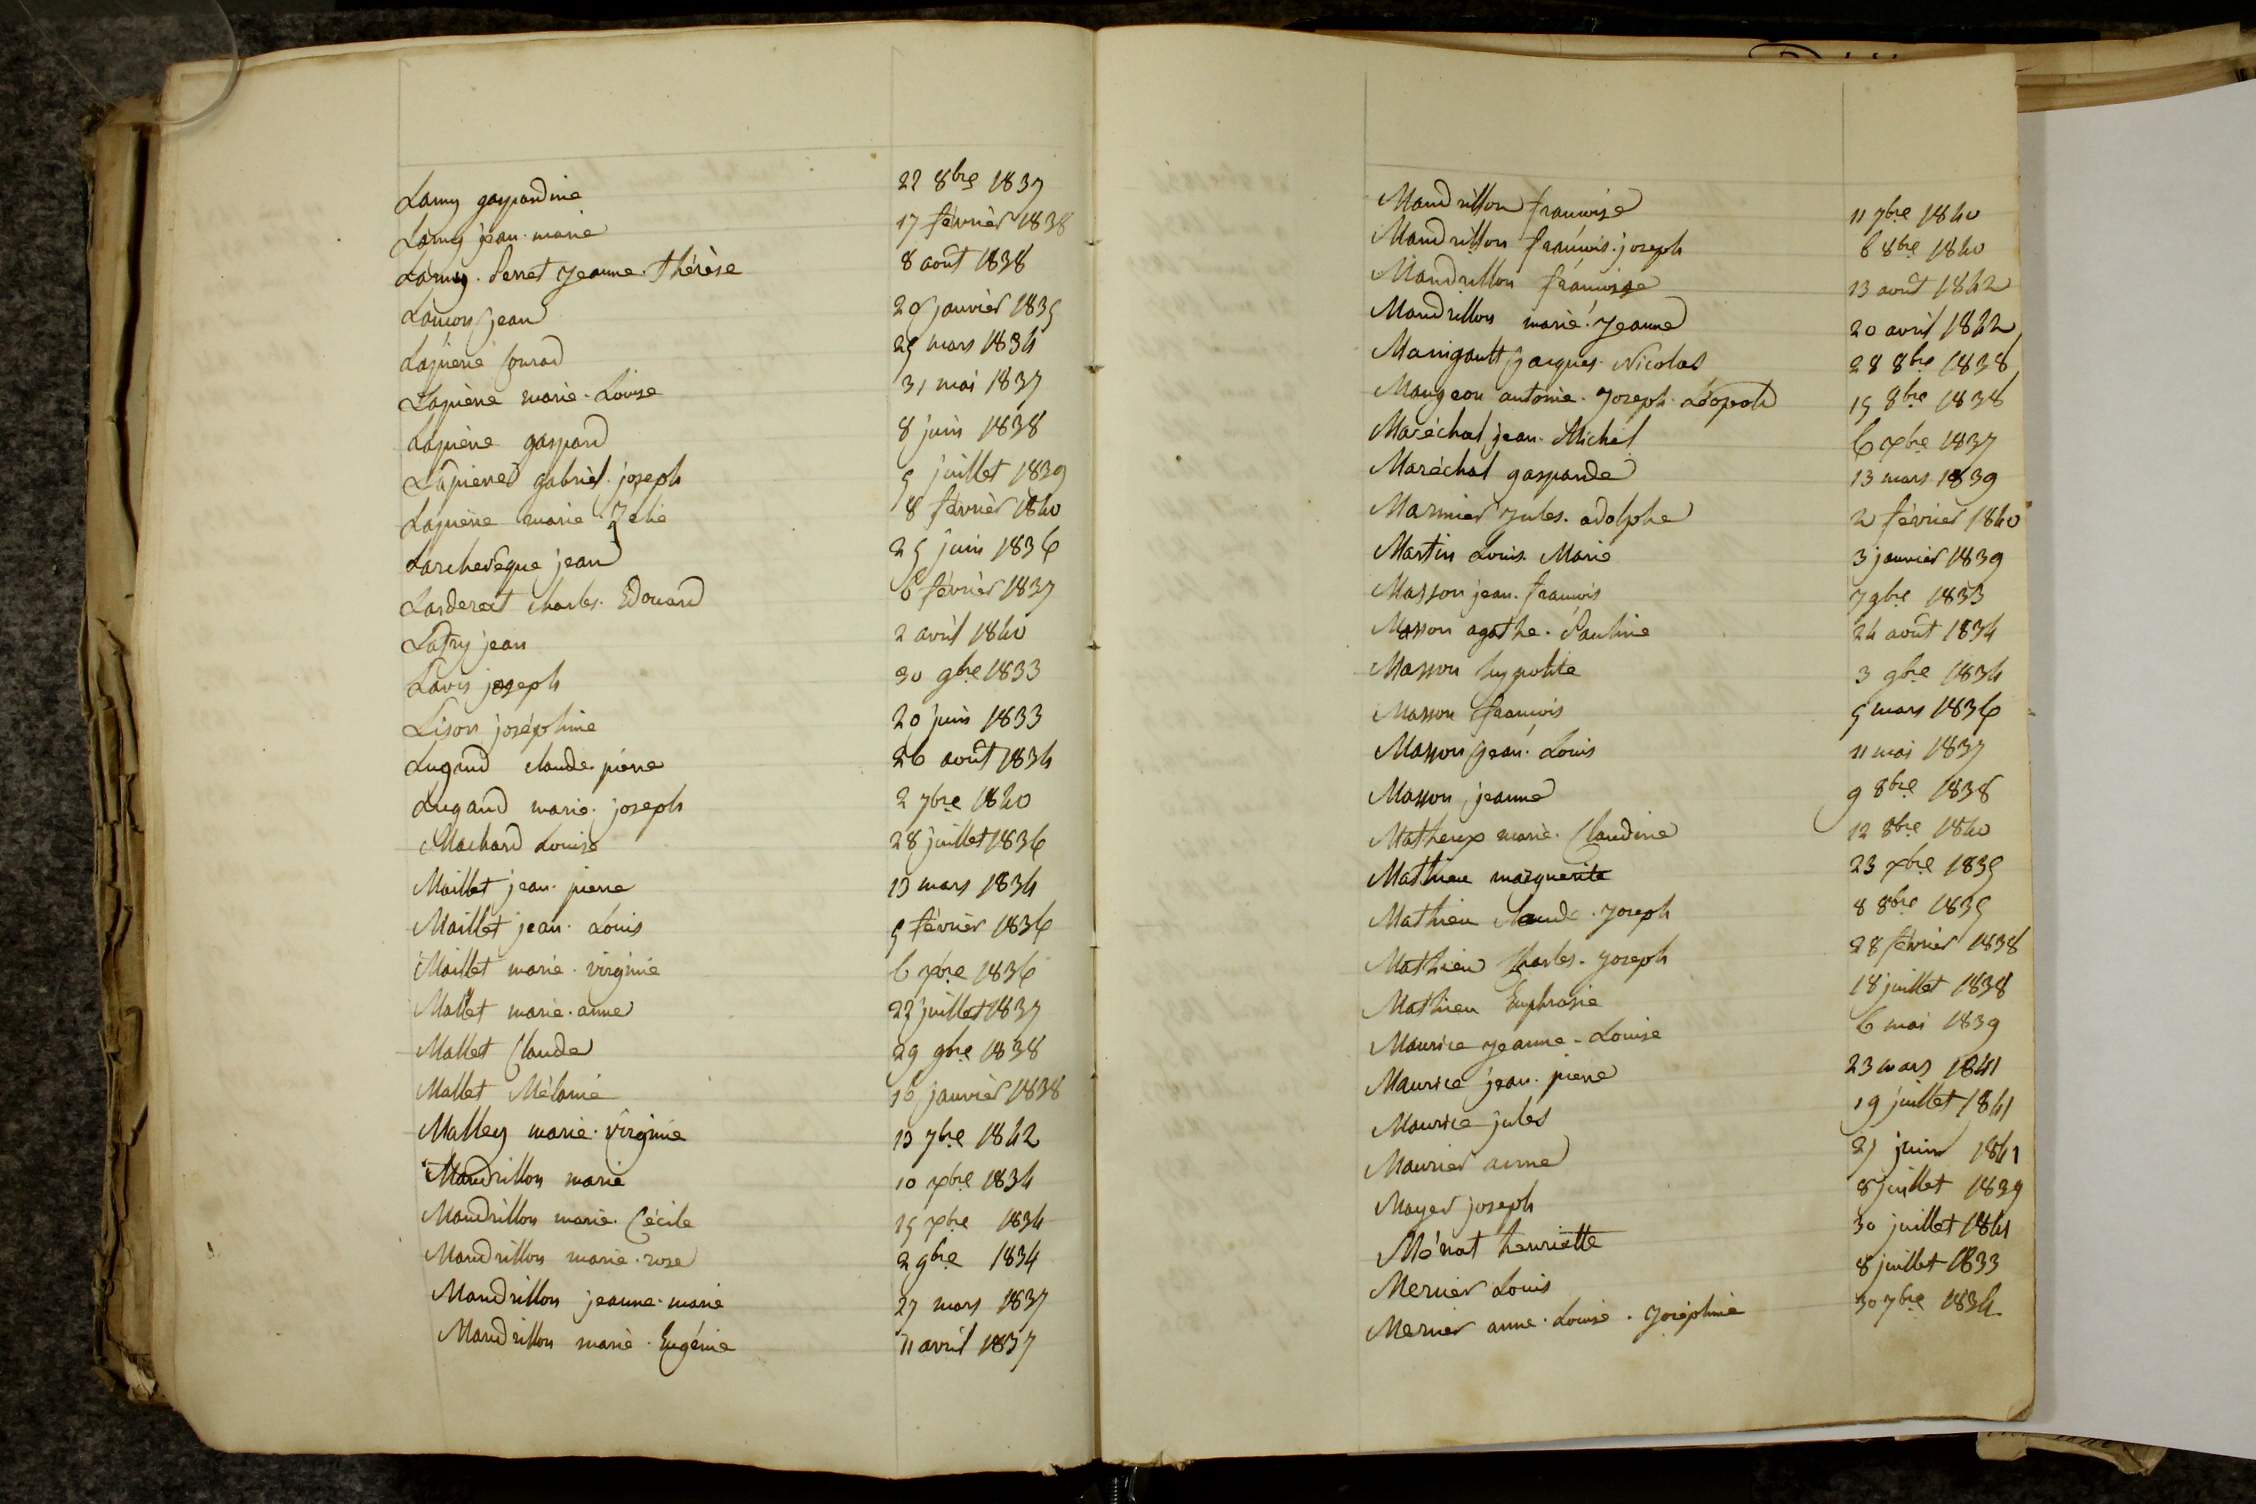 Lamy gaspardine 22 8bre 1837
Lamy jean-marie 17 février 1838
Lamy-Perret Jeanne-thérèse 8 août 1838
Lançon jean 20 janvier 1835
Lapierre Conrad 25 mars 1834
Lapierre marie-Louise 31 mai 1837
Lapierre gaspard 8 juin 1838
Lapierre gabriel-joseph 5 juillet 1839
Lapierre marie-Zelie 8 février 1840
Larchevêque jean 25 juin 1836
Larderat charles-Edouard 6 février 1837
Latry jean 2 avril 1840
Lavis joseph 30 9bre 1833
Lison joséphine 20 juin 1833
Lugand claude-pierre 26 août 1834
Lugand marie-joseph 2 7bre 1840
Machard Louise 28 juillet 1836
Maillet jean-pierre 13 mars 1834
Maillet jean-Louis 5 février 1836
Maillet marie-virginie 6 xbre 1836
Mallet marie-anne 22 juillet 1837
Mallet Claude 29 9bre 1838
Mallet Mélanie 16 janvier 1838
Malley marie-virginie 13 7bre 1842
Mandrillon marie 10 xbre 1834
Mandrillon marie-Cécile 15 xbre 1834
Mandrillon marie-rose 2 9bre 1834
Mandrillon jeanne-marie 27 mars 1837
Mandrillon marie-Eugénie 11 avril 1837
Mandrillon françoise 11 7bre 1840
Mandrillon françois-joseph 6 8bre 1840
Mandrillon françoise 13 août 1842
Mandrillon marie-Jeanne 20 avril 1842
Manigault Jacques-Nicolas 28 8bre 1838
Maugeon antoine-Joseph-Léopold 15 8bre 1838
Maréchal jean-Michel 6 xbre 1837
Maréchal gasparde 13 mars 1839
Marmier Jules-adolphe 2 février 1840
Martin Louis-Marie 3 janvier 1839
Masson jean-françois 7 9bre 1833
Masson agathe-Pauline 24 août 1834
Masson hypolite 3 9bre 1834
Masson françois 5 mars 1836
Masson Jean-Louis 11 mai 1837
Masson jeanne 9 8bre 1838
Matheux marie-Claudine 12 8bre 1840
Mathieu marguerite 23 xbre 1835
Mathieu claude-Joseph 8 8bre 1835
Mathieu Charles-Joseph 28 février 1838
Mathieu Euphrasie 18 juillet 1838
Maurice Jeanne-Louise 6 mai 1839
Maurice jean-pierre 23 mars 1841
Maurice jules 19 juillet 1841
Maurier anne 21 juin 1841
Mayer joseph 8 juillet 1839
Ménat henriette 30 juillet 1841
Mercier Louis 8 juillet 1833
Mercier anne-Louise-Joséphine 30 7bre 1834